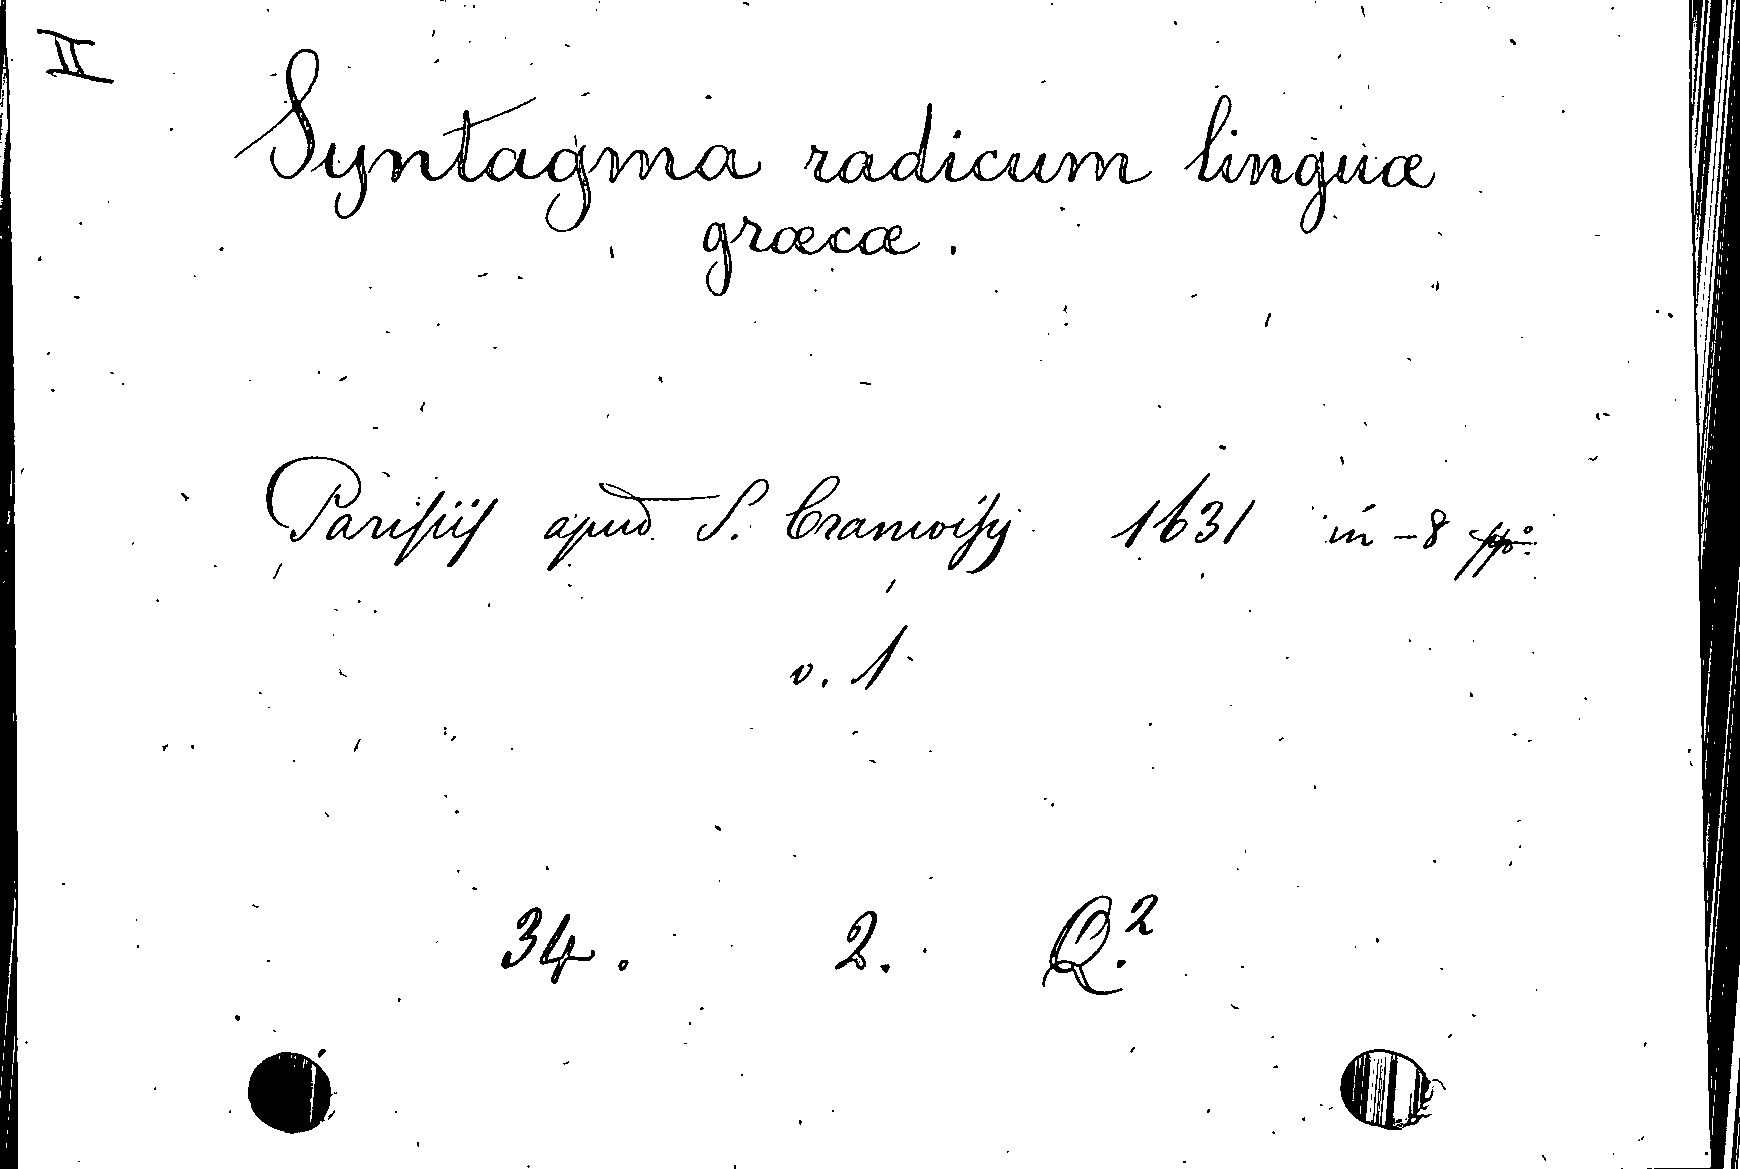 II
Syntagma radicum linguæ
græcæ.
Parisiis apud S. Cramoisy 1631 in-8 ppo.
v. 1
34. 2. Q.2